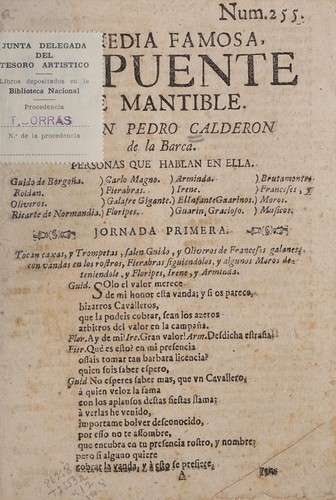 Num.255.
JUNTA DELEGADA
DEL
TESORO ARTISTICO
Libros depositados en la
Biblioteca Nacional
Procedencia
T. BORRAS
N.º de la procedencia
EDIA FAMOSA,
PUENTE
E MANTIBLE.
N PEDRO CALDERON
de la Barca.
PERSONAS QUE HABLAN EN ELLA.
Guido de Borgoña. Carlo Magno. Arminda. Brutamonte
Roldan. Fierabras. Irene. Franceses, y
Oliveros. Galafre Gigante. El Infante Guarinos. Moros.
Ricarte de Normandia. Floripes. Guarin, Gracioso. Musicos.
JORNADA PRIMERA.
Tocan caxas, y Trompetas, salen Guido, y Oliveros de Franceses galanes,
con vandas en los rostros, Fierabras siguiendolos, y algunos Moros de-
teniendole, y Floripes, Irene, y Arminda.
Guid. Solo el valor merece
de mi honor esta vanda; y si os parece,
bizarros Cavalleros,
que la podeis cobrar, sean los azeros
arbitros del valor en la campaña.
Flor. Ay de mi! Ire. Gran valor! Arm. Desdicha estraña!
Fier. Què es esto? en mi presencia
ossais tomar tan barbara licencia?
quien sois saber espero,
Guid No esperes saber mas, que vn Cavallero,
à quien veloz la fama
con los aplausos destas fiestas llama;
à verlas he venido,
importame bolver desconocido,
por esso no te assombre,
que encubra en tu presencia rostro, y nombre;
pero si alguno quiere
cobrar la vanda, y à esto se prefiere,
A